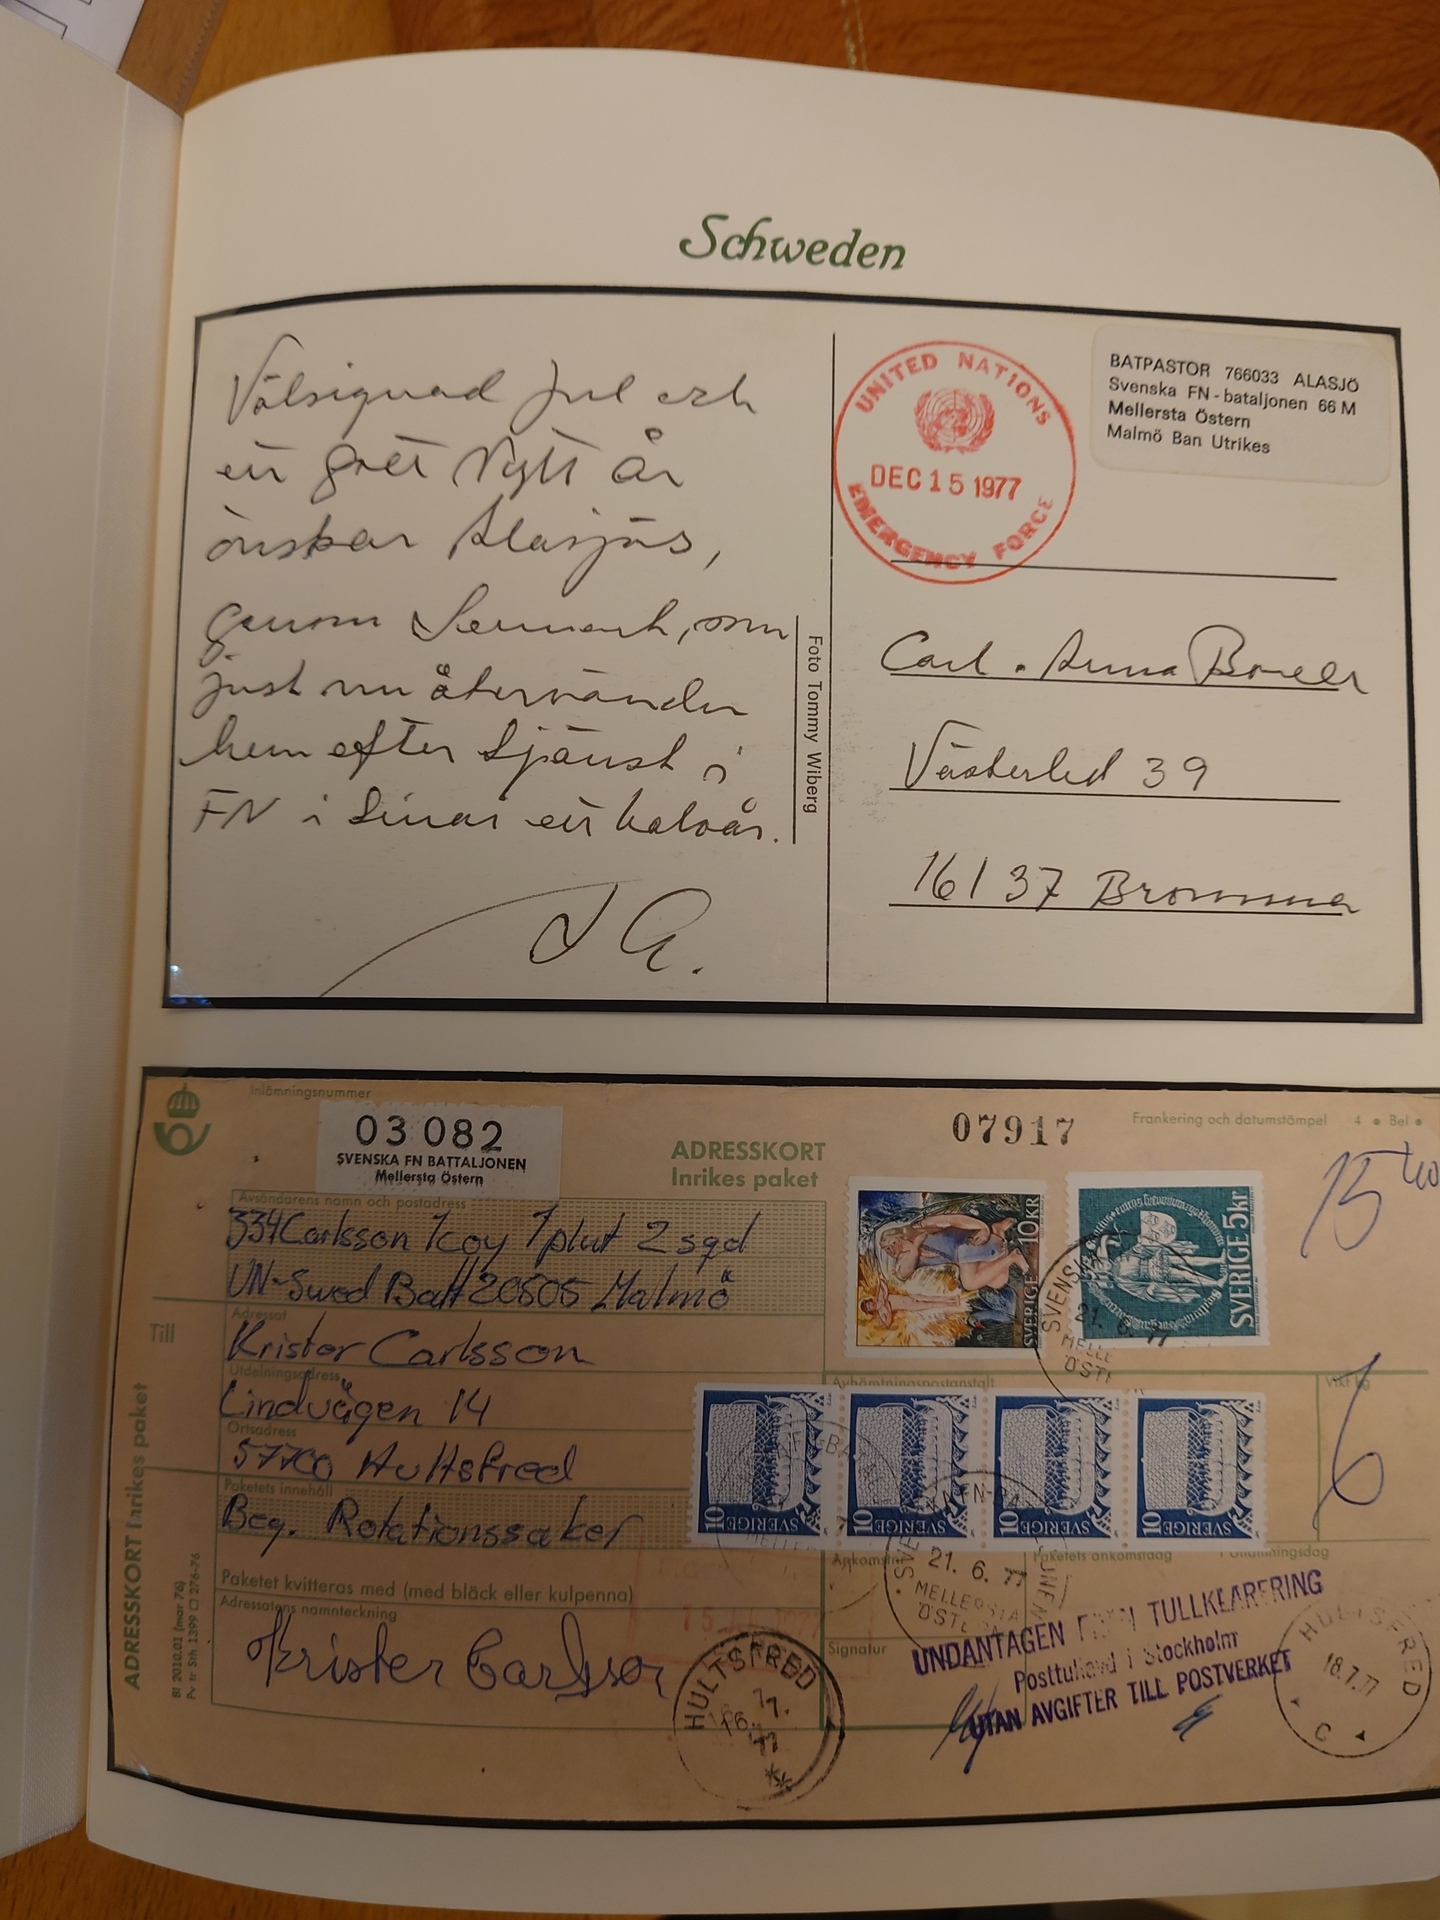 Schweden
Välsignad jul och
ett gott Nytt år
önskar Alasjös,
genom Lennart, som
just nu återvänder
hem efter tjänst i
FN i Sinai ett halvår.
LA.
Foto Tommy Wiberg
UNITED NATIONS
DEC 15 1977
EMERGENCY FORCE
BATPASTOR 766033 ALASJÖ
Svenska FN-bataljonen 66 M
Mellersta Östern
Malmö Ban Utrikes
Carl. Anna
Västerled 39
161 37 Bromma
Inlämningsnummer
03 082
SVENSKA FN BATTALJONEN
Mellersta Östern
ADRESSKORT
Inrikes paket
07917
Frankering och datumstämpel 4 • Bel •
15 40
Avsändarens namn och postadress
334 Carlsson 1coy 1plut 2 sqd
UN-Swed Batt 20505 Malmö
Till
Adressat
Krister Carlsson
Utdelningsadress
Lindvägen 14
Ortsadress
57700 Hultsfred
Paketets innehåll
Beg. Rotationssaker
Paketet kvitteras med (med bläck eller kulpenna)
Adressatens namnteckning
Krister Carlsson
ADRESSKORT Inrikes paket
Bl 2010.01 (mar 76)
Pv tr Sth 1399 □ 276-76
SVERIGE 10KR
SVERIGE 5kr
21. 6. 77
Avhämtningspostanstalt
Vikt kg
6
SVERIGE 10
SVERIGE 10
SVERIGE 10
SVERIGE 10
21. 6. 77
MELLERSTA
Paketets ankomstdag
Signatur
UNDANTAGEN FRÅN TULLKLARERING
Posttullavd i Stockholm
UTAN AVGIFTER TILL POSTVERKET
HULTSFRED
HULTSFRED
18.7.77
C